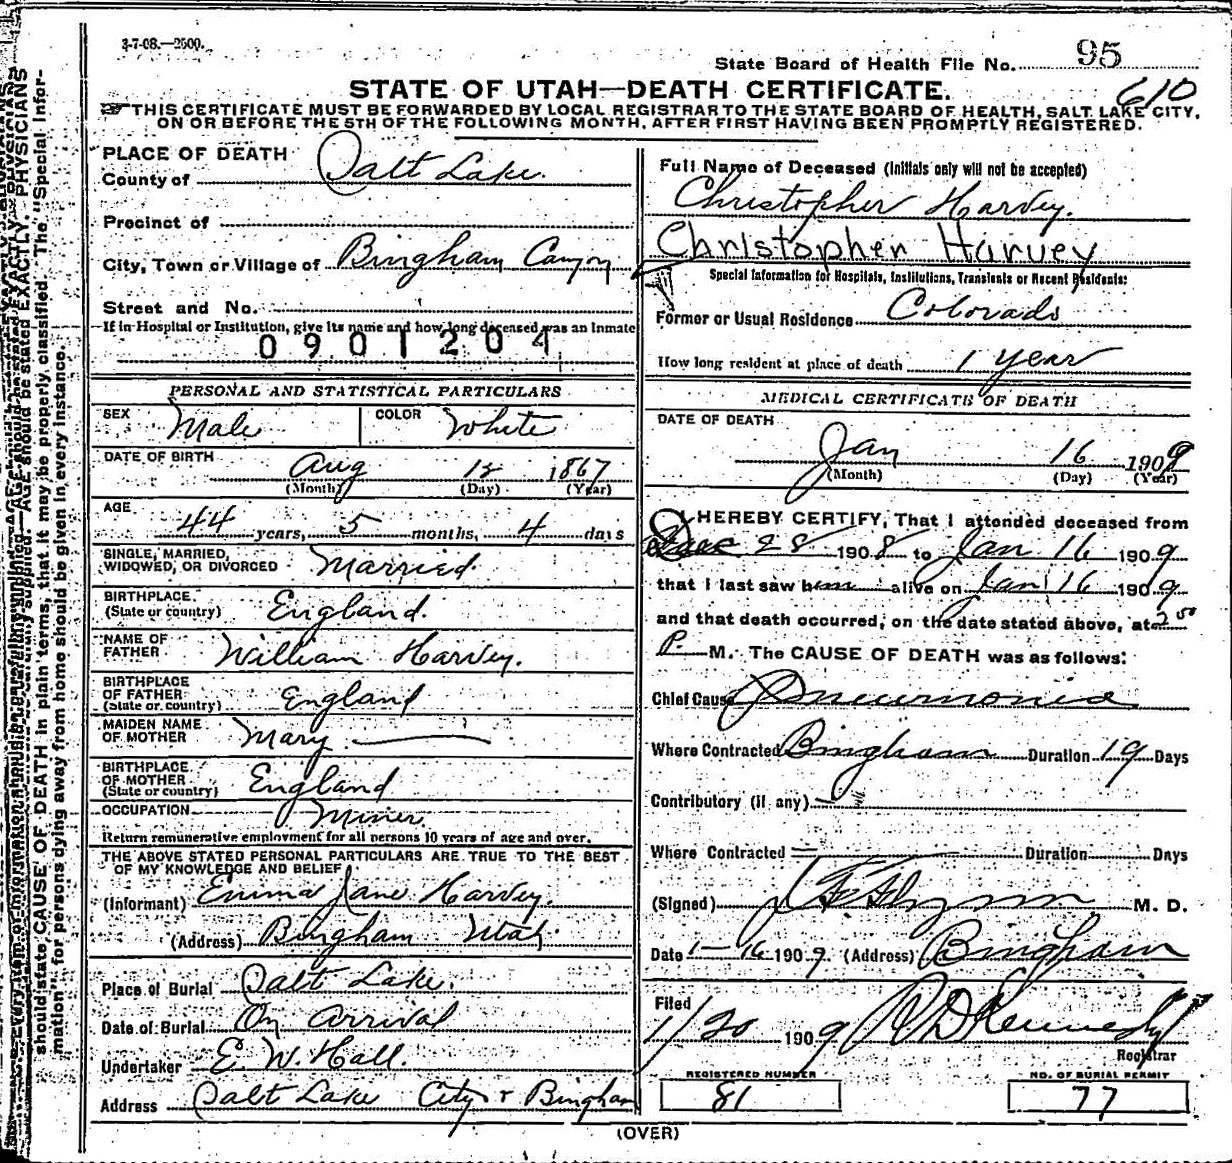 3-7-08.—2500.
State Board of Health File No. 95
610
STATE OF UTAH—DEATH CERTIFICATE.
THIS CERTIFICATE MUST BE FORWARDED BY LOCAL REGISTRAR TO THE STATE BOARD OF HEALTH, SALT LAKE CITY,
ON OR BEFORE THE 5TH OF THE FOLLOWING MONTH, AFTER FIRST HAVING BEEN PROMPTLY REGISTERED.
PLACE OF DEATH
County of Salt Lake.
Precinct of
City, Town or Village of Bingham Canyon
Street and No.
If in Hospital or Institution, give its name and how long deceased was an inmate
0901204
PERSONAL AND STATISTICAL PARTICULARS
SEX Male COLOR White
DATE OF BIRTH
Aug 12 1867
(Month) (Day) (Year)
AGE
44 years, 5 months, 4 days
SINGLE, MARRIED,
WIDOWED, OR DIVORCED Married.
BIRTHPLACE
(State or country) England.
NAME OF
FATHER William Harvey.
BIRTHPLACE
OF FATHER
(State or country) England
MAIDEN NAME
OF MOTHER Mary
BIRTHPLACE
OF MOTHER
(State or country) England
OCCUPATION Miner
Return remunerative employment for all persons 10 years of age and over.
THE ABOVE STATED PERSONAL PARTICULARS ARE TRUE TO THE BEST
OF MY KNOWLEDGE AND BELIEF
(Informant) Emma Jane Harvey.
(Address) Bingham Utah
Place of Burial Salt Lake.
Date of Burial On arrival
Undertaker E. W. Hall.
Address Salt Lake City & Bingham
Full Name of Deceased (Initials only will not be accepted)
Christopher Harvey.
Christopher Harvey
Special Information for Hospitals, Institutions, Transients or Recent Residents:
Former or Usual Residence Colorado
How long resident at place of death 1 year
MEDICAL CERTIFICATE OF DEATH
DATE OF DEATH
Jan 16 1909
(Month) (Day) (Year)
I HEREBY CERTIFY, That I attended deceased from
Dec 28 1908 to Jan 16 1909
that I last saw him alive on Jan 16 1909
and that death occurred, on the date stated above, at 2 50
P. M. The CAUSE OF DEATH was as follows:
Chief Cause Pneumonia
Where Contracted Bingham Duration 19 Days
Contributory (if any)
Where Contracted Duration Days
(Signed) M. D.
Date 1-16 1909. (Address) Bingham
Filed
1/20 1909 Kennedy
Registrar
REGISTERED NUMBER
81
NO. OF BURIAL PERMIT
77
(OVER)
should state CAUSE OF DEATH in plain terms, that it may be properly classified. The "Special Infor-
mation" for persons dying away from home should be given in every instance.